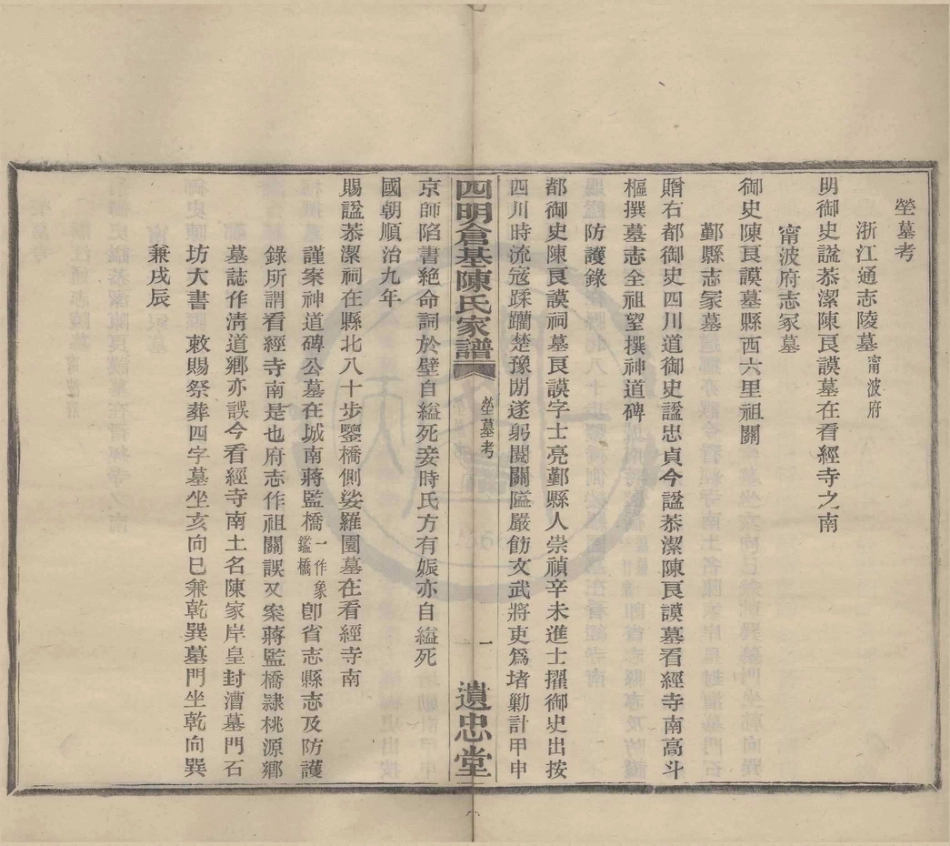 塋墓考
浙江通志陵墓甯波府
明御史諡恭潔陳良謨墓在看經寺之南
甯波府志冢墓
御史陳良謨墓縣西六里祖關
鄞縣志冢墓
贈右都御史四川道御史諡忠貞今諡恭潔陳良謨墓看經寺南高斗
樞撰墓志全祖望撰神道碑
防護錄
都御史陳良謨祠墓良謨字士亮鄞縣人崇禎辛未進士擢御史出按
四川時流寇蹂躪楚豫閒遂躬閱關隘嚴飭文武將吏爲堵勦計甲申
四明倉基陳氏家譜
塋墓考
一
遺忠堂
京師陷書絕命詞於壁自縊死妾時氏方有娠亦自縊死
國朝順治九年
賜諡恭潔祠在縣北八十步鑒橋側娑羅園墓在看經寺南
謹案神道碑公墓在城南蔣監橋一作象鑑橋卽省志縣志及防護
錄所謂看經寺南是也府志作祖關誤又案蔣監橋隸桃源鄉
墓誌作淸道鄉亦誤今看經寺南土名陳家岸皇封漕墓門石
坊大書敕賜祭葬四字墓坐亥向巳兼乾巽墓門坐乾向巽
兼戌辰